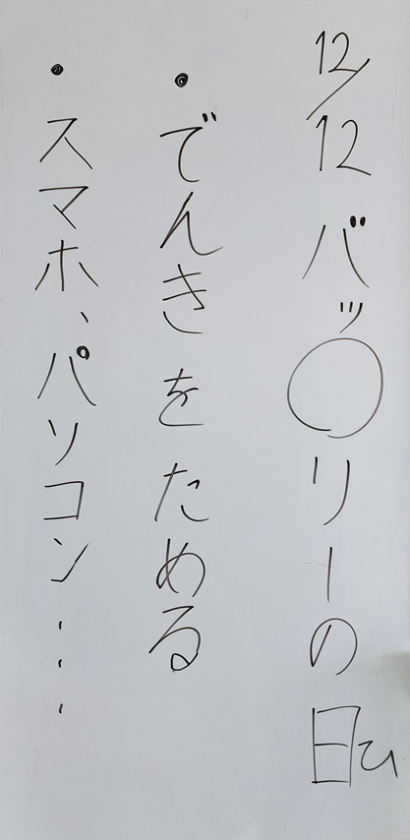 12/12 バッ○リーの日ひ
・でんきをためる
・スマホ、パソコン…